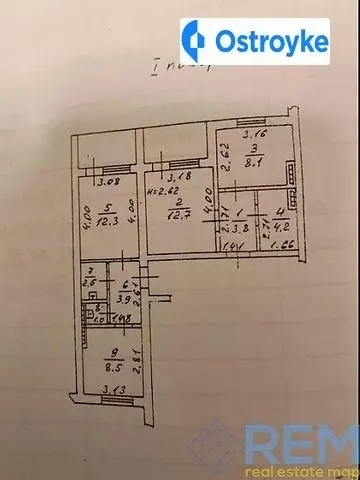 Ostroyke
I
3.16
2.62
3
8.1
3.08
3.18
H=2.62
4.00
5
12.3
4.00
2
12.7
4.00
2.71
1
3.8
2.71
4
4.2
1.41
1.66
7
2.6
6
3.9
2.61
8
1.0
1.48
9
8.5
2.81
3.13
REM
real estate map